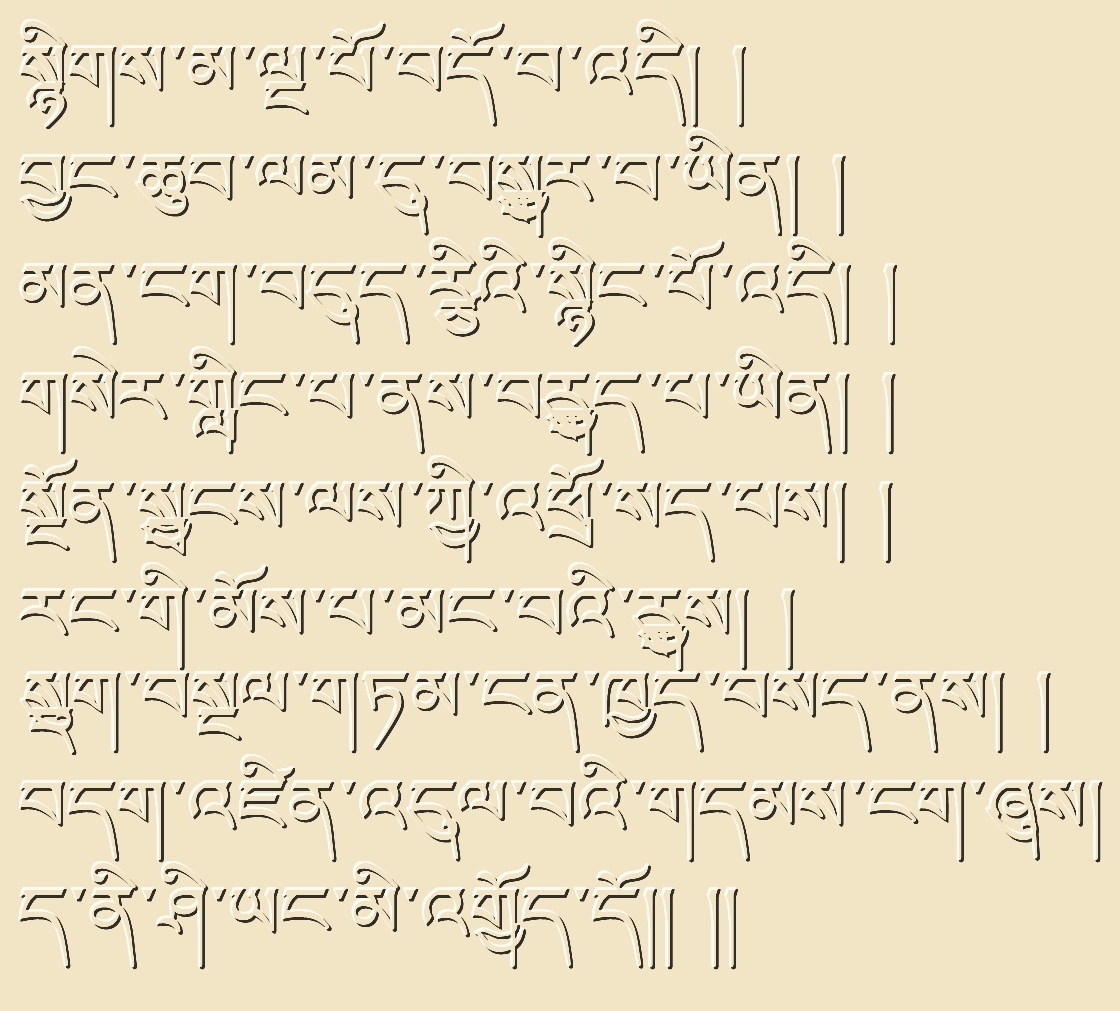 སྙིགས་མ་ལྔ་པོ་བདོ་བ་འདི། །
བྱང་ཆུབ་ལམ་དུ་བསྒྱུར་བ་ཡིན། །
མན་ངག་བདུད་རྩིའི་སྙིང་པོ་འདི། །
གསེར་གླིང་པ་ནས་བརྒྱུད་པ་ཡིན། །
སྔོན་སྦྱངས་ལས་ཀྱི་འཕྲོ་སད་པས། །
རང་གི་མོས་པ་མང་བའི་རྒྱུས། །
སྡུག་བསྔལ་གཏམ་ངན་ཁྱད་བསད་ནས། །
བདག་འཛིན་འདུལ་བའི་གདམས་ངག་ཞུས།
ད་ནི་ཤི་ཡང་མི་འགྱོད་དོ།། །།